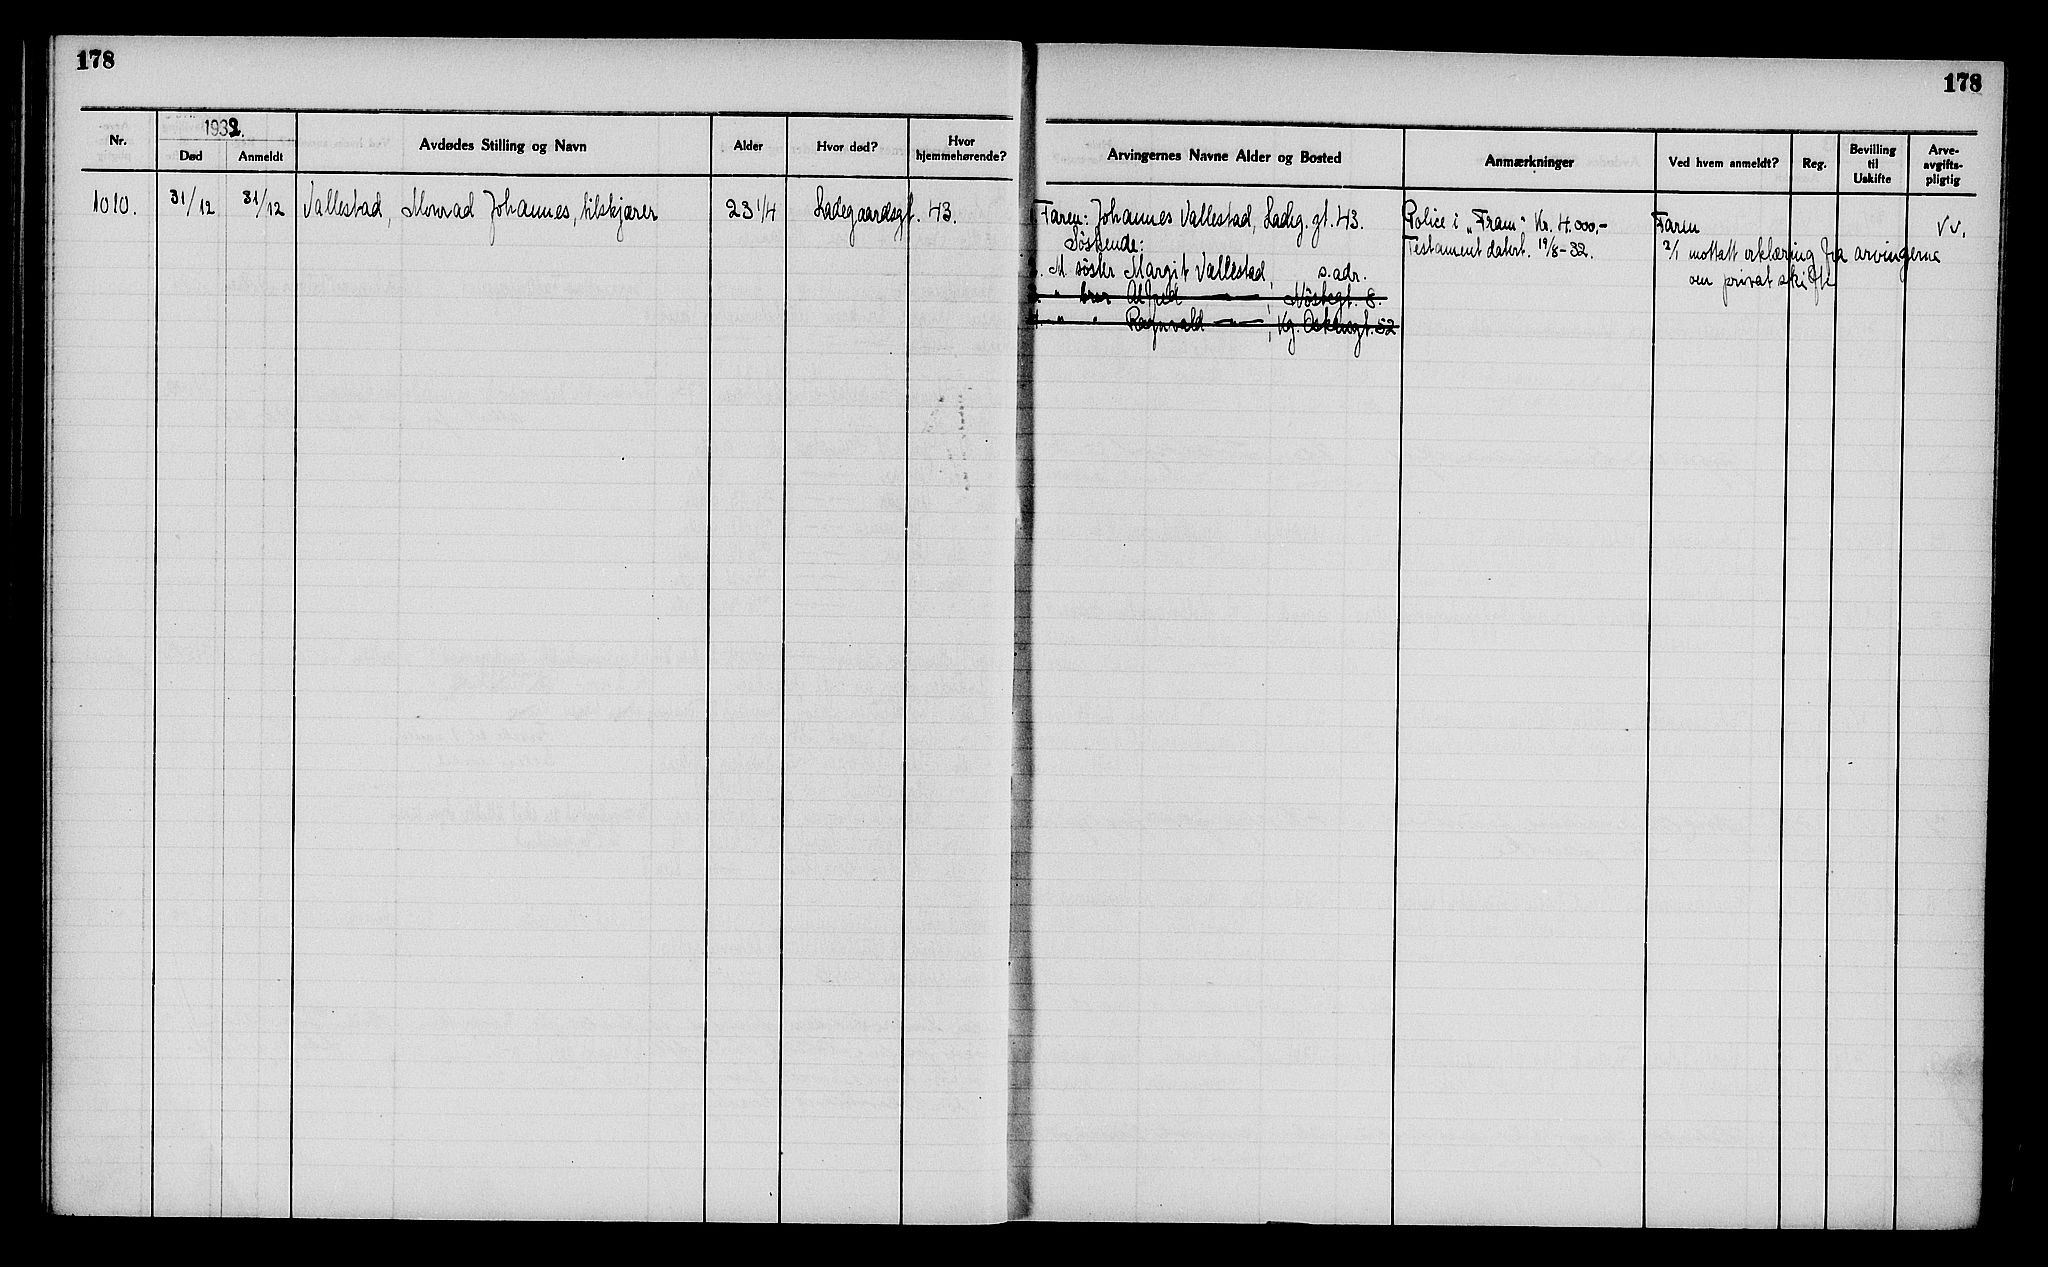 178
178
1932.
Nr.
Død
Anmeldt
Avdødes Stilling og Navn
Alder
Hvor død?
Hvor hjemmehørende?
Arvingernes Navne Alder og Bosted
Anmærkninger
Ved hvem anmeldt?
Reg.
Bevilling til Uskifte
Arve-avgifts-pligtig
1010. 31/12 31/12 Vallestad, Monrad Johannes, tilskjærer 23 1/4 Ladegaardsgt. 43.
Faren: Johannes Vallestad, Ladeg. gt. 43.
Søskende:
M. søster Margit Vallestad, s. adr.
" bror Alfred —"—, Nøstegt. 8.
" " Ragnvald —"—, Kg. Oskarsgt. 52
Police i „Fram" Kr. 4.000,-
Testament datert. 19/8-32.
Faren
2/1 mottatt erklæring fra arvingerne
om privat skifte
VV.